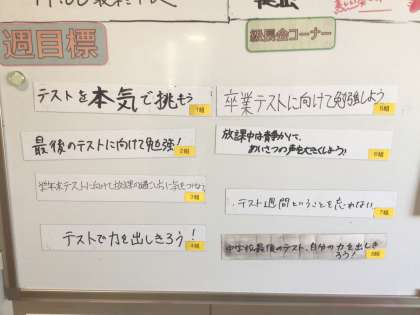 週目標
級長会コーナー
テストを本気で挑もう
1組
最後のテストに向けて勉強!
2組
学年末テストに向けて放課の過ごし方に気をつけよう
3組
テストで力を出しきろう!
4組
卒業テストに向けて勉強しよう
5組
放課中は静かにして、
あいさつの声を大きくしよう!
6組
テスト週間ということを忘れない
7組
中学校最後のテスト、自分の力を出しき
ろう!
8組